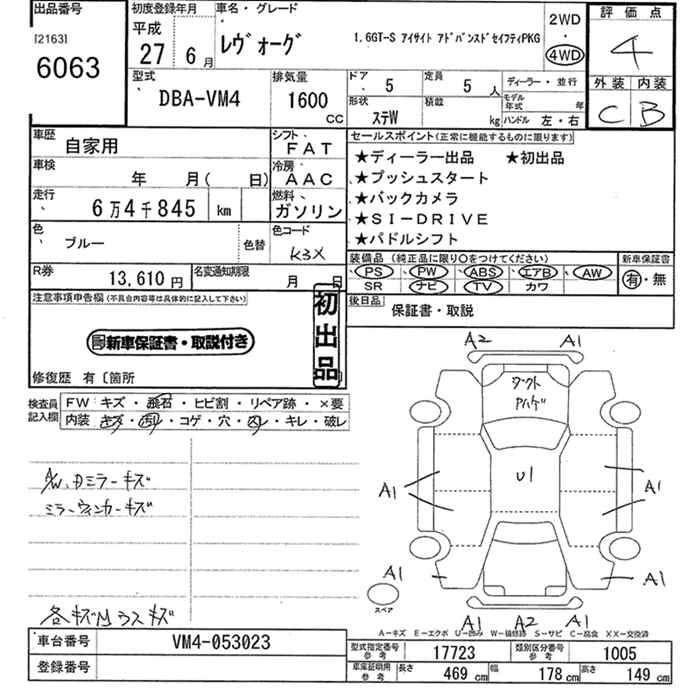 出品番号
[2163]
6063
初度登録年月
平成
27 6月
車名・グレード
レヴォーグ
1.6GT-S アイサイト アドバンスドセイフティPKG
2WD
・
4WD
評価点
4
外装 内装
C B
型式
DBA-VM4
排気量
1600
cc
ドア
5
定員
5人
形状
ステW
積載
kg
ディーラー・並行
モデル年式 年
ハンドル 左・右
車歴
自家用
シフト
FAT
車検
年 月( 日)
冷房
AAC
走行
6万4千845 km
燃料
ガソリン
色
ブルー
色替
色コード
K3X
R券
13,610円
名変通知期限
月 日
セールスポイント(正常に機能するものに限ります)
★ディーラー出品 ★初出品
★プッシュスタート
★バックカメラ
★SI-DRIVE
★パドルシフト
装備品(純正品に限り○をつけてください)
PS・PW・ABS・エアB・AW
SR ナビ・TV カワ
新車保証書
有・無
後日品
保証書・取説
注意事項申告欄(不具合内容等は具体的に記入して下さい)
初出品
新車保証書・取説付き
修復歴 有〔箇所
検査員記入欄
FW キズ・飛石・ヒビ割・リペア跡・×要
内装 キズ・汚レ・コゲ・穴・凹・キレ・破レ
A/W、Dミラーキズ
ミラーウィンカーキズ
各キズM ラスキズ
A2 A1
ダクト
Aハゲ
U1
A1 A1
A1 A1
スペア
A1 A2 A1
A-キズ E-エクボ U-凹み W-補修跡 S-サビ C-腐食 XX-交換済
車台番号
VM4-053023
登録番号
型式指定番号 参考
17723
類別区分番号 参考
1005
車庫証明用 参考
長さ 469 cm 幅 178 cm 高さ 149 cm